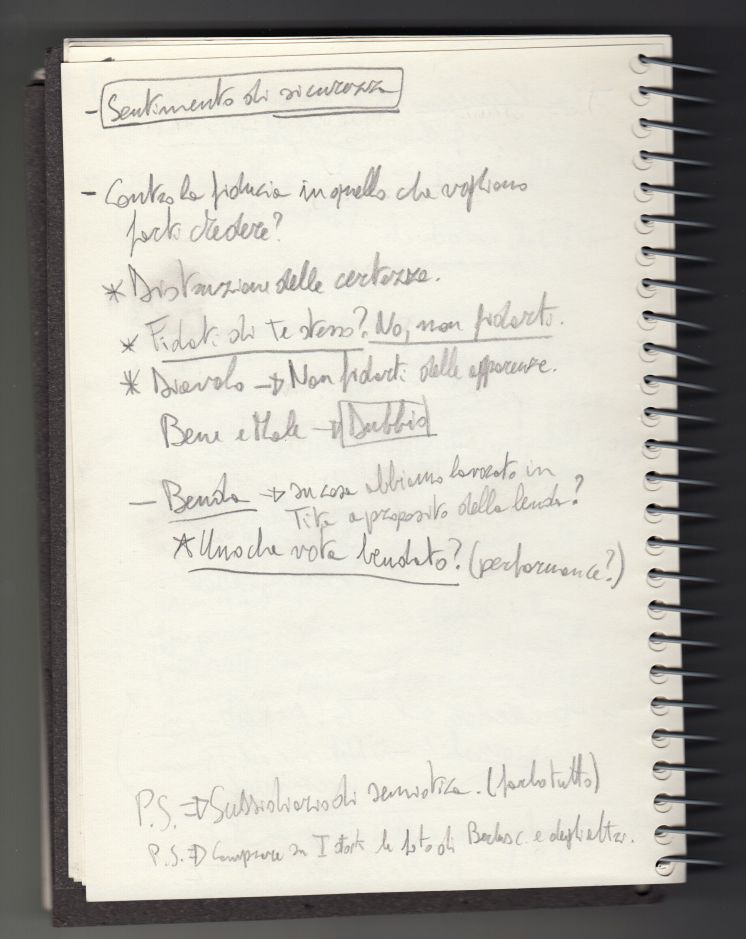 - Sentimento di sicurezza
- Contro la fiducia in quello che vogliono
farti credere?
* Distruzione delle certezze.
* Fidati di te stesso? No, non fidarti.
* Diavolo → Non fidarti delle apparenze.
Bene e Male → Dubbio
- Benda → su cosa abbiamo lavorato in
Tite a proposito della benda?
* Uno che vota bendato? (performance?)
P.S. ⇒ Sussidiario di semiotica. (farlo tutto)
P.S. ⇒ Comprare su I stock le foto di Berlusc. e degli altri.